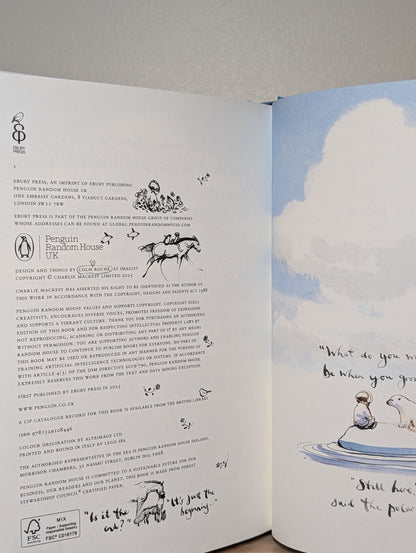 EBURY
PRESS
1
EBURY PRESS, AN IMPRINT OF EBURY PUBLISHING
PENGUIN RANDOM HOUSE UK
ONE EMBASSY GARDENS, 8 VIADUCT GARDENS,
LONDON SW11 7BW
EBURY PRESS IS PART OF THE PENGUIN RANDOM HOUSE GROUP OF COMPANIES
WHOSE ADDRESSES CAN BE FOUND AT GLOBAL.PENGUINRANDOMHOUSE.COM
Penguin
Random House
UK
DESIGN AND THINGS BY COLM ROCHE AT IMAGIST
COPYRIGHT © CHARLIE MACKESY LIMITED 2025
CHARLIE MACKESY HAS ASSERTED HIS RIGHT TO BE IDENTIFIED AS THE AUTHOR OF
THIS WORK IN ACCORDANCE WITH THE COPYRIGHT, DESIGNS AND PATENTS ACT 1988
PENGUIN RANDOM HOUSE VALUES AND SUPPORTS COPYRIGHT. COPYRIGHT FUELS
CREATIVITY, ENCOURAGES DIVERSE VOICES, PROMOTES FREEDOM OF EXPRESSION
AND SUPPORTS A VIBRANT CULTURE. THANK YOU FOR PURCHASING AN AUTHORIZED
EDITION OF THIS BOOK AND FOR RESPECTING INTELLECTUAL PROPERTY LAWS BY
NOT REPRODUCING, SCANNING OR DISTRIBUTING ANY PART OF IT BY ANY MEANS
WITHOUT PERMISSION. YOU ARE SUPPORTING AUTHORS AND ENABLING PENGUIN
RANDOM HOUSE TO CONTINUE TO PUBLISH BOOKS FOR EVERYONE. NO PART OF
THIS BOOK MAY BE USED OR REPRODUCED IN ANY MANNER FOR THE PURPOSE OF
TRAINING ARTIFICIAL INTELLIGENCE TECHNOLOGIES OR SYSTEMS. IN ACCORDANCE
WITH ARTICLE 4(3) OF THE DSM DIRECTIVE 2019/790, PENGUIN RANDOM HOUSE
EXPRESSLY RESERVES THIS WORK FROM THE TEXT AND DATA MINING EXCEPTION.
FIRST PUBLISHED BY EBURY PRESS IN 2025
WWW.PENGUIN.CO.UK
A CIP CATALOGUE RECORD FOR THIS BOOK IS AVAILABLE FROM THE BRITISH LIBRARY
ISBN 9781529108446
COLOUR ORIGINATION BY ALTAIMAGE LTD
PRINTED AND BOUND IN ITALY BY LEGO SPA
THE AUTHORISED REPRESENTATIVE IN THE EEA IS PENGUIN RANDOM HOUSE IRELAND,
MORRISON CHAMBERS, 32 NASSAU STREET, DUBLIN D02 YH68.
PENGUIN RANDOM HOUSE IS COMMITTED TO A SUSTAINABLE FUTURE FOR OUR
BUSINESS, OUR READERS AND OUR PLANET. THIS BOOK IS MADE FROM FOREST
STEWARDSHIP COUNCIL® CERTIFIED PAPER.
FSC
www.fsc.org
MIX
Paper | Supporting
responsible forestry
FSC® C018179
"Is it the
end?"
"It's just the
beginning."
"What do you
be when you
"Still here"
said the polar